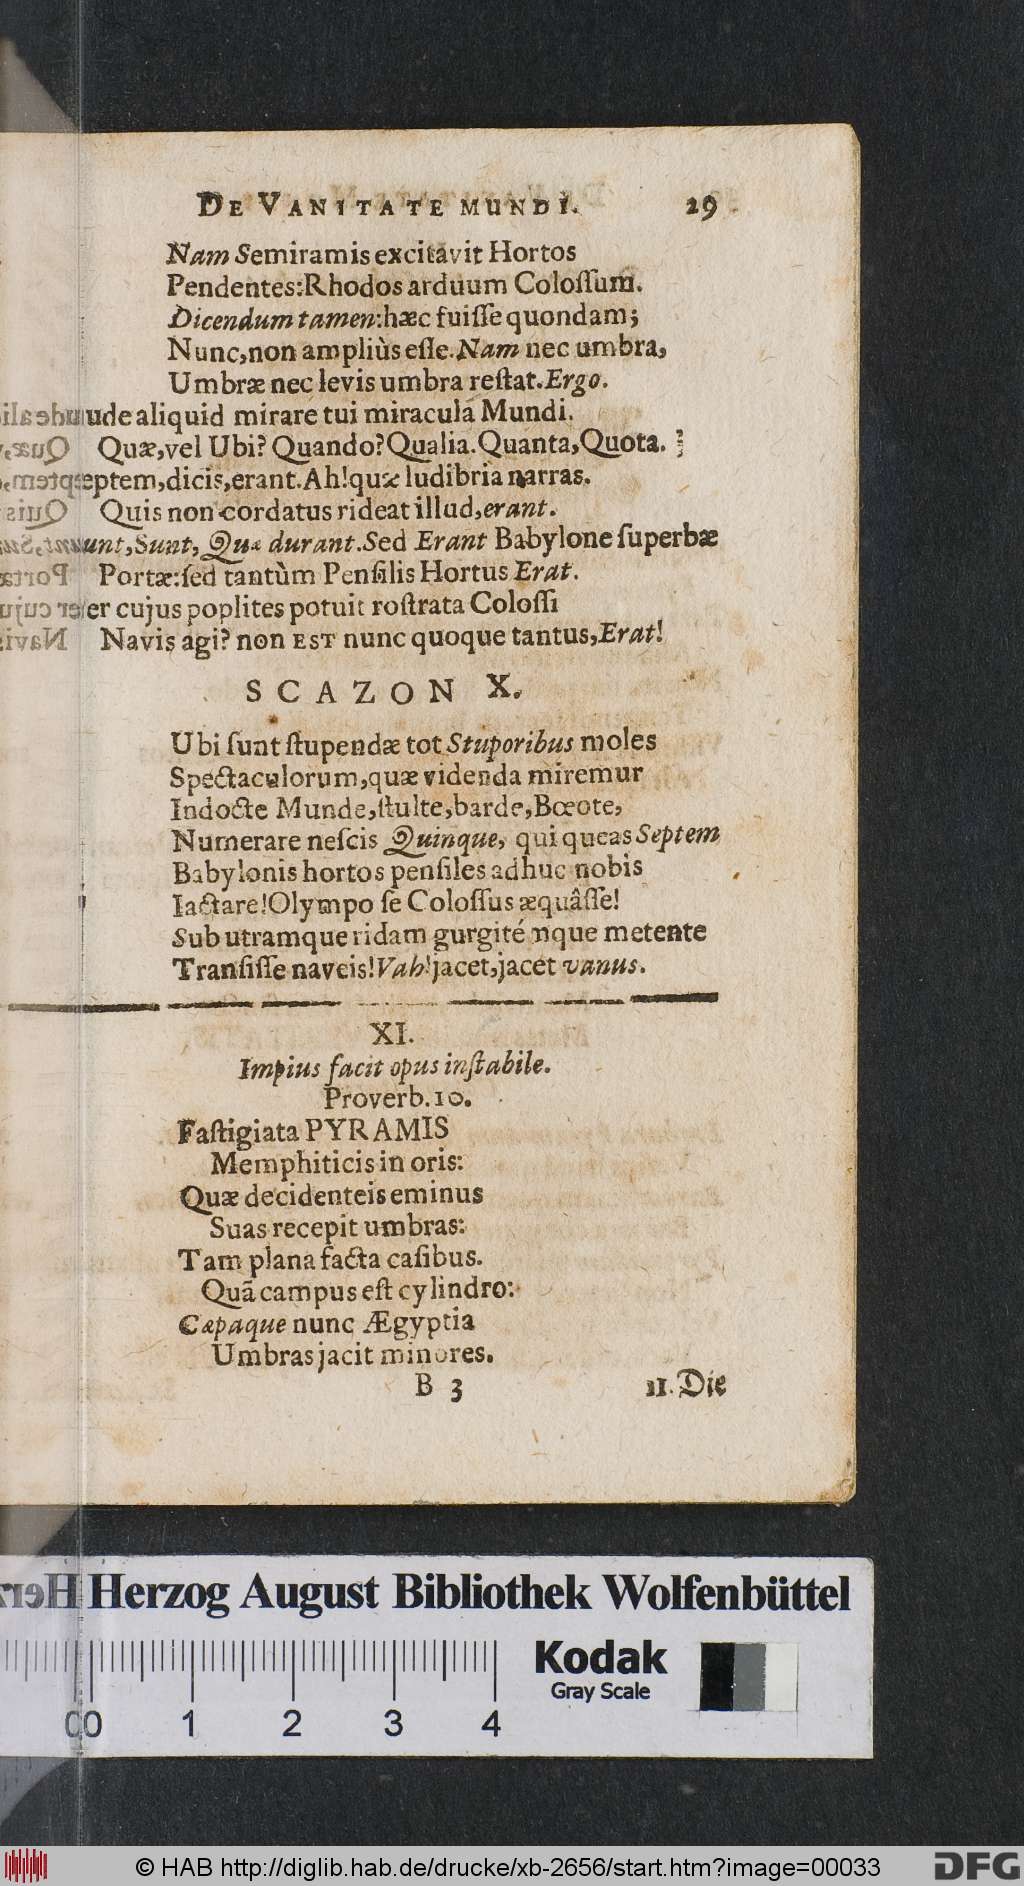 DE VANITATE MUNDI. 29
Nam Semiramis excitavit Hortos
Pendentes: Rhodos arduum Coloſſum.
Dicendum tamen: hæc fuiſſe quondam;
Nunc, non ampliùs eſſe. Nam nec umbra,
Umbræ nec levis umbra reſtat. Ergo.
ude aliquid mirare tui miracula Mundi.
Quæ, vel Ubi? Quando? Qualia. Quanta, Quota.
eptem, dicis, erant. Ah! quæ ludibria narras.
Quis non cordatus rideat illud, erant.
unt, Sunt, Quæ durant. Sed Erant Babylone ſuperbæ
Portæ: ſed tantùm Penſilis Hortus Erat.
er cujus poplites potuit roſtrata Coloſſi
Navis agi? non EST nunc quoque tantus, Erat!
SCAZON X.
Ubi ſunt ſtupendæ tot Stuporibus moles
Spectaculorum, quæ videnda miremur
Indocte Munde, ſtulte, barde, Bœote,
Numerare neſcis Quinque, qui queas Septem
Babylonis hortos penſiles adhuc nobis
Iactare! Olympo ſe Coloſſus æquâſſe!
Sub utramque ridam gurgité nque metente
Tranſiſſe naveis! Vah! jacet, jacet vanus.
XI.
Impius facit opus inſtabile.
Proverb. 10.
Faſtigiata PYRAMIS
Memphiticis in oris:
Quæ decidenteis eminus
Suas recepit umbras:
Tam plana facta caſibus.
Quã campus eſt cylindro:
Cæpaque nunc Ægyptia
Umbras jacit minores.
B 3 11. Die
Herzog August Bibliothek Wolfenbüttel
Kodak
Gray Scale
0 1 2 3 4
© HAB http://diglib.hab.de/drucke/xb-2656/start.htm?image=00033
DFG